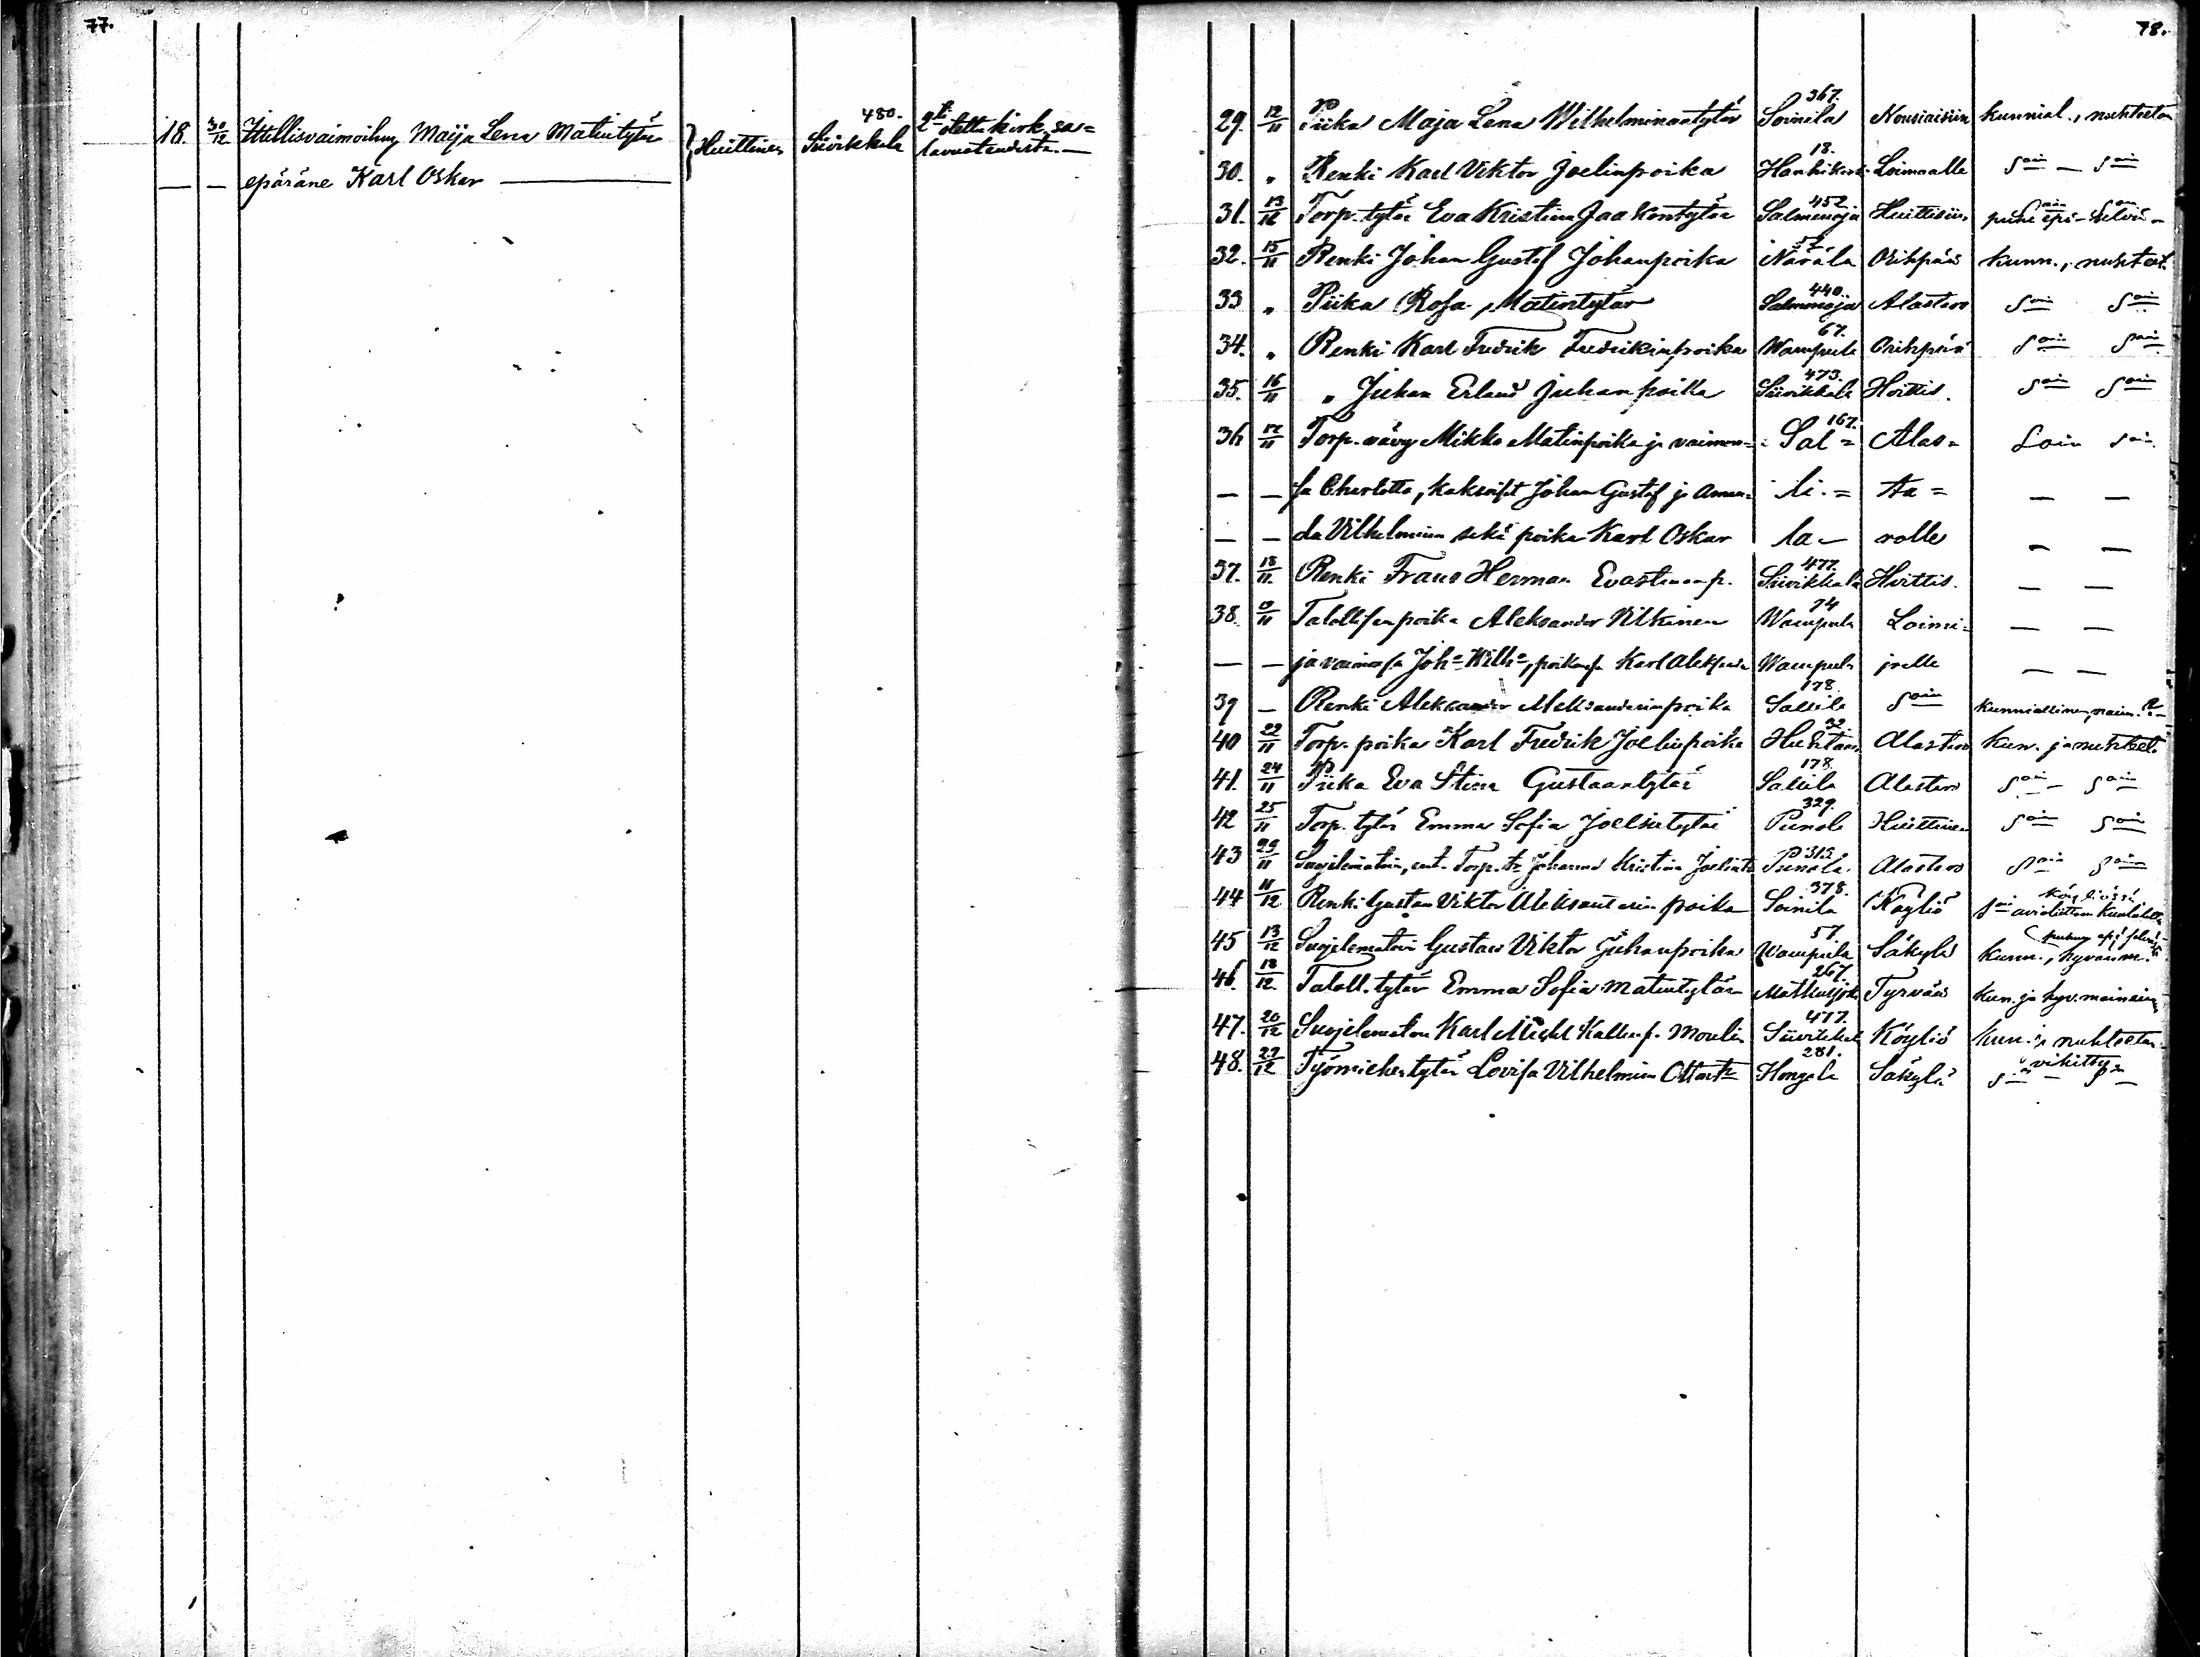 77.
18. 30/12 Itsellisvaimoihm. Maija Lena Matintytär } Huittinen 480. Siivikkala 2ti otettu kirk. sa=
lavuotendista.—
— — epäräne Karl Oskar —
78.
29. 12/11 Piika Maja Lena Wilhelminantytär 367. Soinila Nousiaisiin kunnial., nuhteeton
30. " Renki Karl Viktor Joelinpoika 18. Loimaalle Sain — Sain
31. 13/12 Torp. tytär Eva Kristina Jaakontytär 452 Salmenoja Huittisiin
32. 15/11 Renki Johan Gustaf Johanpoika 52 Närälä Orihpää kunn., nuhteet.
33 " Piika Rosa Matintytär 440. Salmenoja Alastaro Sain Sain
34. " Renki Karl Fredrik Fredrikinpoika 67. Wampula Orihpää Sain Sain
35. 16/11 " Juhan Erland Juhanpoika 473. Siivikkala Huittis. Sain Sain
36 17/11 Torp. vävy Mikko Matinpoika ja vaimon= 167. Sal= Alas= Sain Sain
— — sa Charlotta, kaksoiset Johan Gustaf ja Aman= li.= ta= — —
— — da Vilhelmina sekä poika Karl Oskar la— rolle — —
37. 18/11 Renki Frans Herman Evastinanp. 477. Siivikkala Huittis. — —
38. 19/11 Talollisen poika Aleksander Vilkinen 74 Wampula Loimi= — —
— — ja vaimonsa Joh:a Wilh:a, poikansa Karl Aleksand. Wampula joelle — —
39 — Renki Aleksander Aleksanderinpoika 178. Sallila Sain kunniallinen, naim.
40 22/11 Torp. poika Karl Fredrik Joelinpoika 32. Huhtaa Alastaro kun. ja nuhteet.
41. 24/11 Piika Eva Stina Gustaantytär 178. Sallila Alastaro Sain — Sain
42 25/11 Torp. tytär Emma Sofia Joelintytär 329. Punola Huittinen Sain Sain
43 29/11 Suojelematoin, ent. Torp. tr Johanna Kristina Joelintr 313. Punola Alastaro Sain Sain
44 11/12 Renki Gustav Viktor Aleksanterin poika 378. Soinila Köyliö Sain avioliittoon kuulutettu Köyliössä
45 13/12 Suojelematoin Gustav Viktor Juhanpoika 57. Wampula Säkylä kunn., hyvänm.
46. 18/12. Talall. tytär Emma Sofia Matintytär 267. Matkusjoki Tyrvää kun. ja hyv. maineinen
47. 20/12 Suojelematon Karl Mickel Kallenp. Moulin 477. Siivikkal Köyliö kun. ja nuhteeton
48. 22/12 Työmiehentytär Lovisa Vilhelmina Ottontr 281. Hongola Säkylä Sain — vihitty Sain —